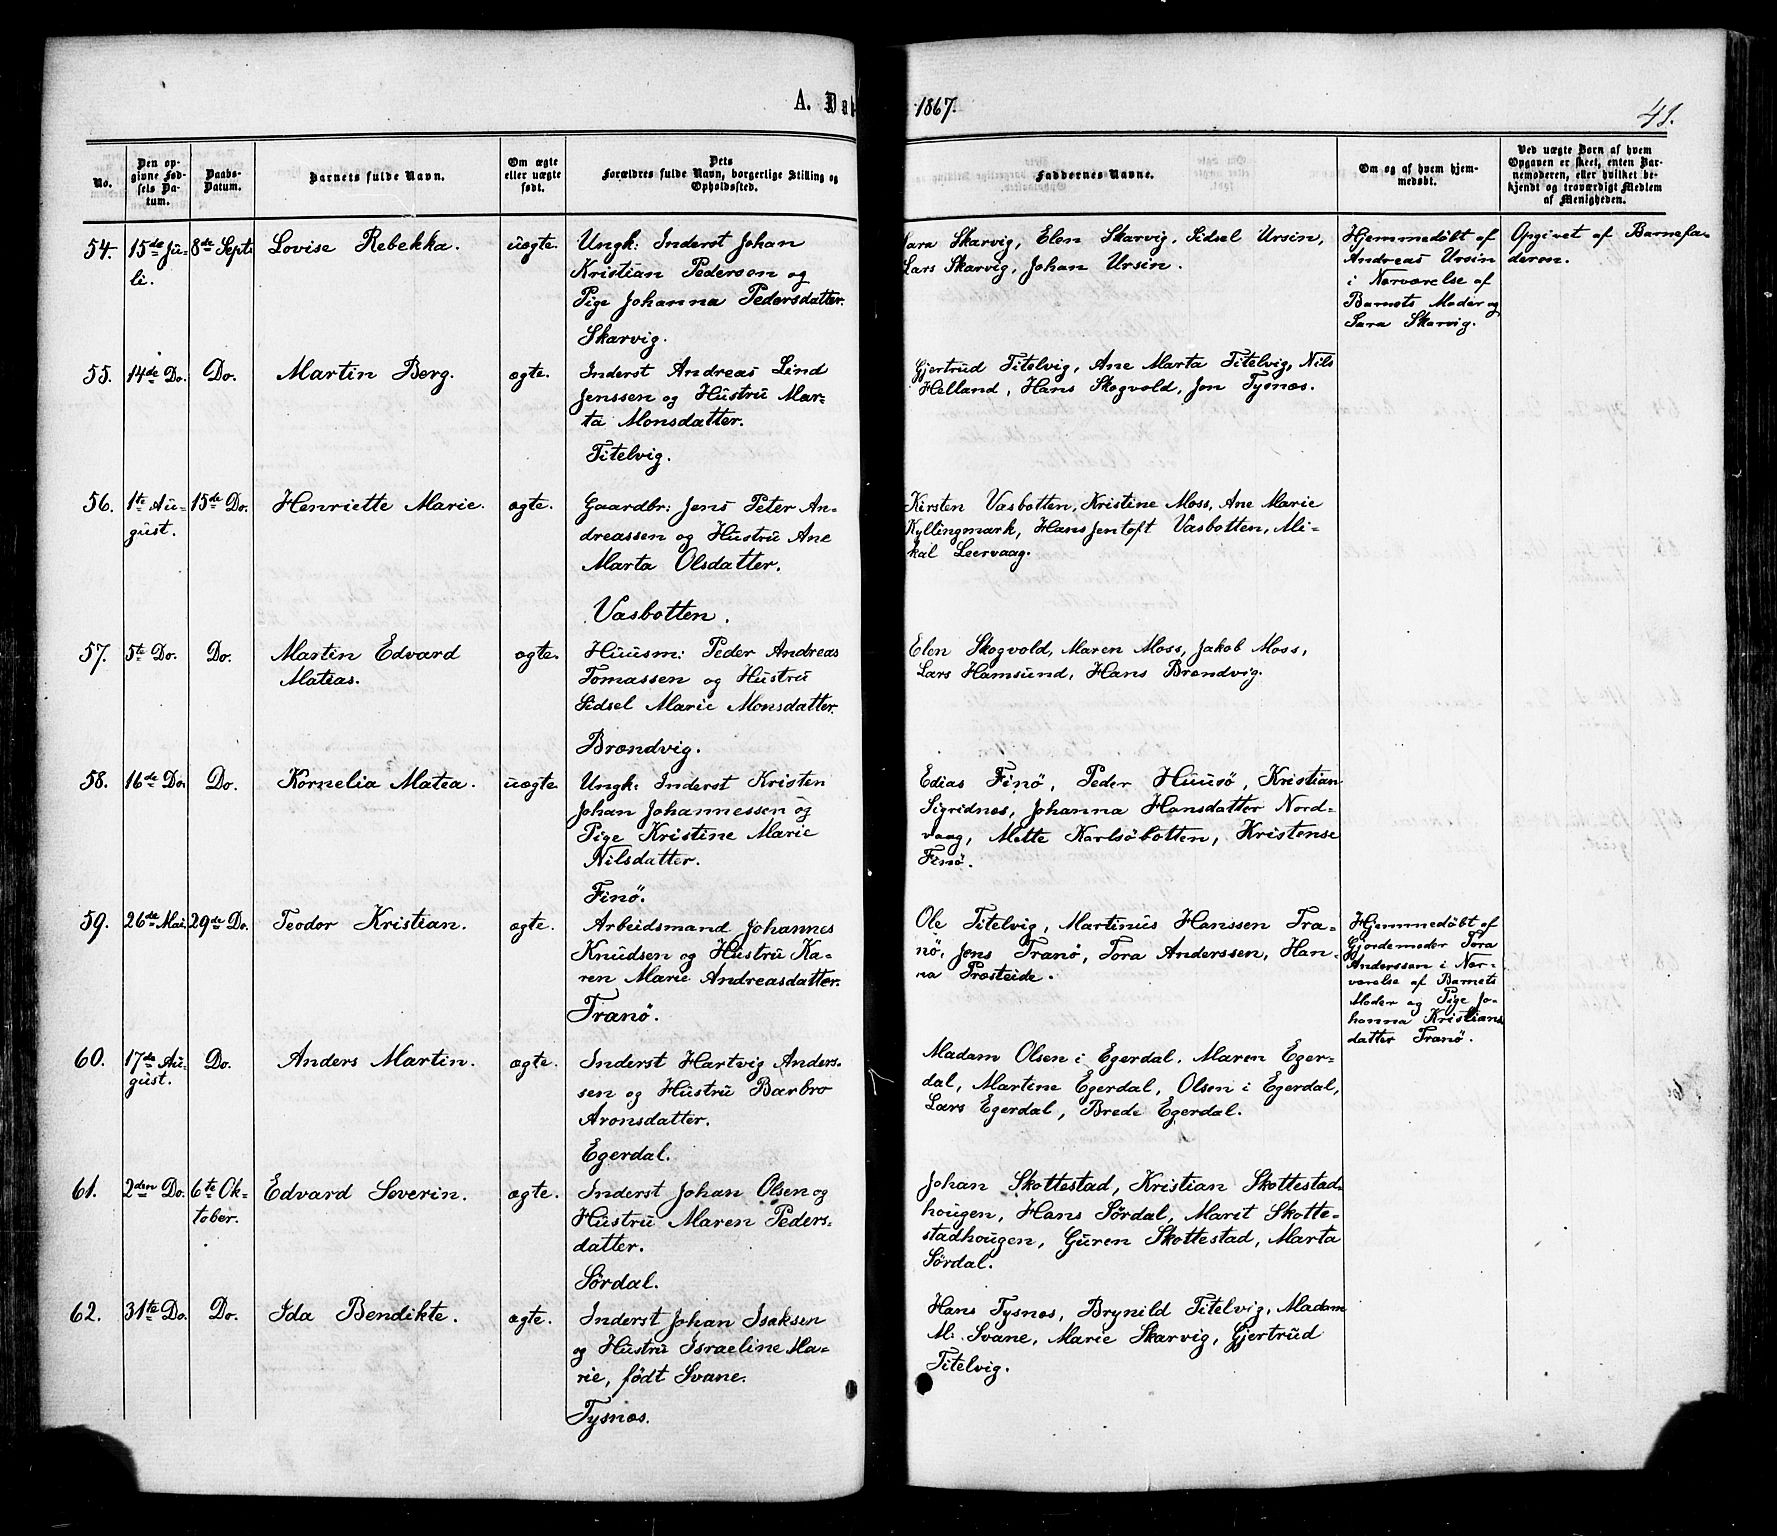 A. Døb
1867.
41.
No.
Den op-
givne Fød-
sels Da-
tum.
Daabs-
Datum.
Barnets fulde Navn.
Om ægte
eller uægte
født.
Dets
Forældres fulde Navn, borgerlige Stilling og
Opholdssted.
Faddernes Navne.
Om og af hvem hjem-
medøbt.
Ved uægte Børn af hvem
Opgaven er skeet, enten Bar-
nemoderen, eller hvilket be-
kjendt og troværdigt Medlem
af Menigheden.
54. 15de Ju-
li.
8de Septb
Lovise Rebekka.
uægte.
Ungk: Inderst Johan
Kristian Pedersen og
Pige Johanna Pedersdatter.
Skarvig.
Sara Skarvig, Elen Skarvig, Sidsel Ursin,
Lars Skarvig, Johan Ursin.
Hjemmedøbt af
Andreas Ursin
i Nærværelse af
Barnets Moder og
Sara Skarvig.
Opgivet af Barnefa-
deren.
55. 14de Do. Do. Martin Berg. ægte.
Inderst Andreas Lind
Jenssen og Hustru Mar-
ta Monsdatter.
Titelvig.
Gjertrud Titelvig, Ane Marta Titelvig, Nils
Helland, Hans Skogvold, Jon Tysnæs.
56. 1te Au-
gust.
15de Do. Henriette Marie. ægte.
Gaardbr: Jens Peter An-
dreassen og Hustru Ane
Marta Olsdatter.
Vasbotten.
Kirsten Vasbotten, Kristine Moss, Ane Marie
Kyllingmark, Hans Jentoft Vasbotten, Mi-
kal Leervaag.
57. 5te Do. Do. Martin Edvard
Matias.
ægte.
Huusm: Peder Andreas
Tomassen og Hustru
Sidsel Marie Monsdatter.
Brændvig.
Elen Skogvold, Maren Moss, Jakob Moss,
Lars Hamsund, Hans Brændvig.
58. 16de Do. Do. Kornelia Matea. uægte.
Ungk: Inderst Kristen
Johan Johannessen og
Pige Kristine Marie
Nilsdatter.
Finø.
Edias Finø, Peder Huusø, Kristian
Sigridnæs, Johanna Hansdatter Nord-
vaag, Mette Karlsøbotten, Kristense
Finø.
59. 26de Mai. 29de Do. Teodor Kristian. ægte.
Arbeidsmand Johannes
Knudsen og Hustru Ka-
ren Marie Andreasdatter.
Tranø.
Ole Titelvig, Martinus Hanssen Tra-
nø, Jens Tranø, Tora Anderssen, Han-
na Præsteide.
Hjemmedøbt af
Gjordemoder Tora
Anderssen i Nær-
værelse af Barnets
Moder og Pige Jo-
hanna Kristians
datter Tranø.
60. 17de Au-
gust.
Do. Anders Martin. ægte.
Inderst Hartvig Anders-
sen og Hustru Barbro
Aronsdatter.
Egerdal.
Madam Olsen i Egerdal, Maren Eger-
dal, Martine Egerdal, Olsen i Egerdal,
Lars Egerdal, Brede Egerdal.
61. 2den Do. 6te Ok-
tober.
Edvard Severin. ægte.
Inderst Johan Olsen og
Hustru Maren Peders-
datter.
Sørdal.
Johan Skottestad, Kristian Skottestad-
hougen, Hans Sørdal, Marit Skotte-
stadhougen, Guren Skottestad, Marta
Sørdal.
62. 31te Do. Do. Ida Bendikte. ægte.
Inderst Johan Isaksen
og Hustru Israeline Ma-
rie, født Svane.
Tysnæs.
Hans Tysnæs, Brynild Titelvig, Madam
M. Svane, Marie Skarvig, Gjertrud
Titelvig.